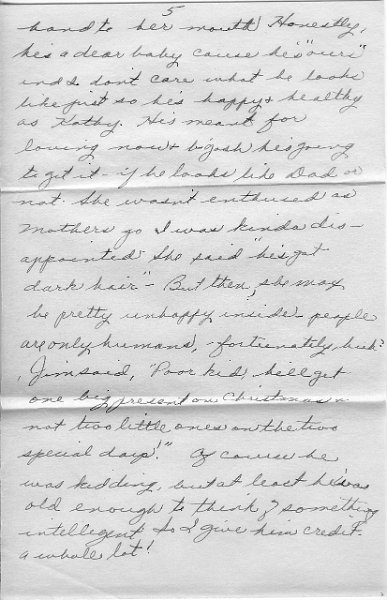 5
hand to her mouth! Honestly,
he's a dear baby cause he's "ours"
and I don't care what he looks
like just so he's happy & healthy
as Kathy. He's meant for
loving now & b'gosh he's going
to get it - if he looks like Dad or
not. She wasn't enthused as
Mothers go I was kinda dis-
appointed. She said "he's got
dark hair" - But then, she may
be pretty unhappy inside - people
are only humans, - fortunately, huh?
Jim said, "Poor kid, he'll get
one big present on Christmas &
not two little ones on the two
special days!" Of course he
was kidding, but at least he was
old enough to think of something
intelligent so I give him credit.
a whole lot!